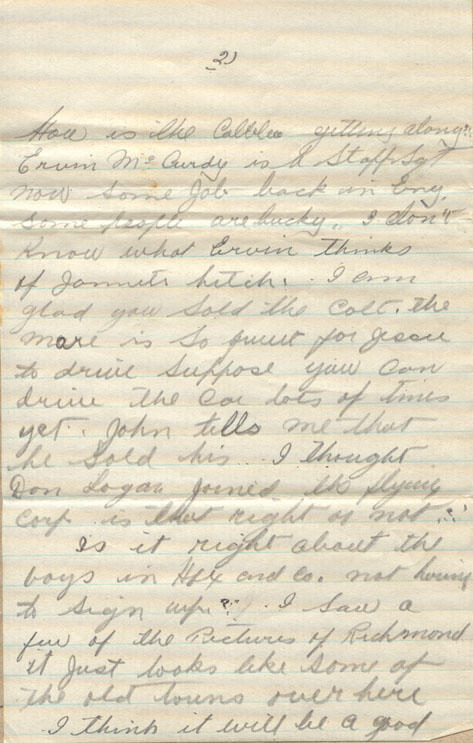 2)
How is the getting along?
Ervin McCurdy is a Staff Sgt
now some Job back in Eng.
some people are lucky. I don't
know what Ervin thinks
of hitch. I am
glad you sold the Colt. the
mare is so quiet for Jessie
to drive suppose you can
drive the car lots of times
yet. John tells me that
he sold his. I thought
Don Logan Joined the flying
Corp. is that right or not?
Is it right about the
boys in Hfx and Co. not having
to sign up? I saw a
few of the Pictures of Richmond
it Just looks like some of
the old towns over here
I think it will be a good